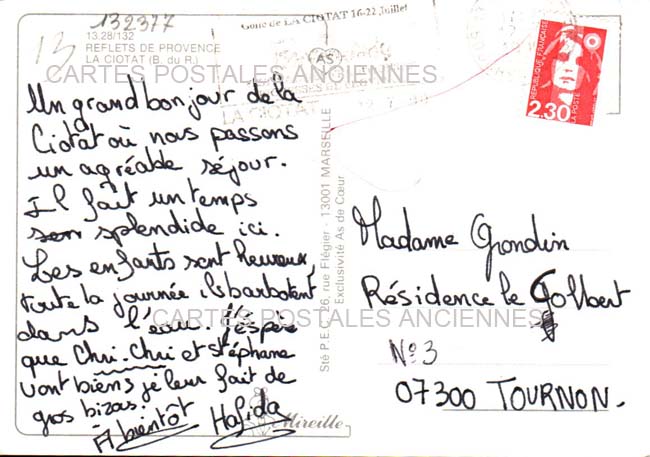 132377
13
13.28/132
REFLETS DE PROVENCE
LA CIOTAT (B. du R.)
Golfe de LA CIOTAT 16-22 Juillet
AS
LA CIOTAT
REPUBLIQUE FRANÇAISE
LA POSTE
2.30
CARTES POSTALES ANCIENNES
Un grand bonjour de la
Ciotat où nous passons
un agréable séjour.
Il fait un temps
splendide ici.
Les enfants sont heureux
toute la journée ils barbotent
dans l'eau. J'espère
que Chri.Chri et Stéphane
vont biens je leur fait de
gros bizas.
A bientôt Hafida
Mireille
Sté P.E.C. - 26, rue Flégier - 13001 MARSEILLE
Exclusivité As de Cœur
Madame Grondin
Résidence le Colbert
CARTES POSTALES ANCIENNES
N°3
07300 TOURNON.